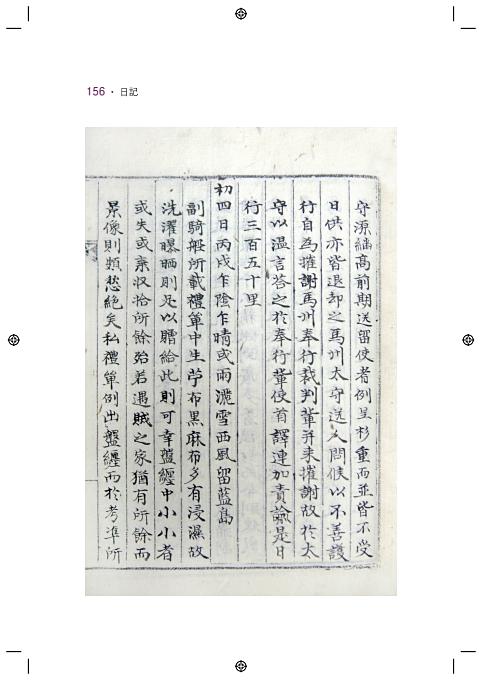 156 • 日記
守源繙高前期送留使者例呈杉重而並皆不受
日供亦皆退却之馬州太守送人問候以不善護
行自為摧謝馬州奉行裁判輩并来摧謝故於太
守以温言荅之於奉行輩使首譯連加責諭是日
行三百五十里
初四日丙戌乍陰乍晴或雨灑雪西風留藍島
副騎船所載禮單中生苧布黑麻布多有浸濕故
洗濯曝晒則足以贈給此則可幸盤纏中小小者
或失或棄収拾所餘殆若遇賊之家猶有所餘而
景像則類愁絶矣私禮單例出盤纏而於考準所